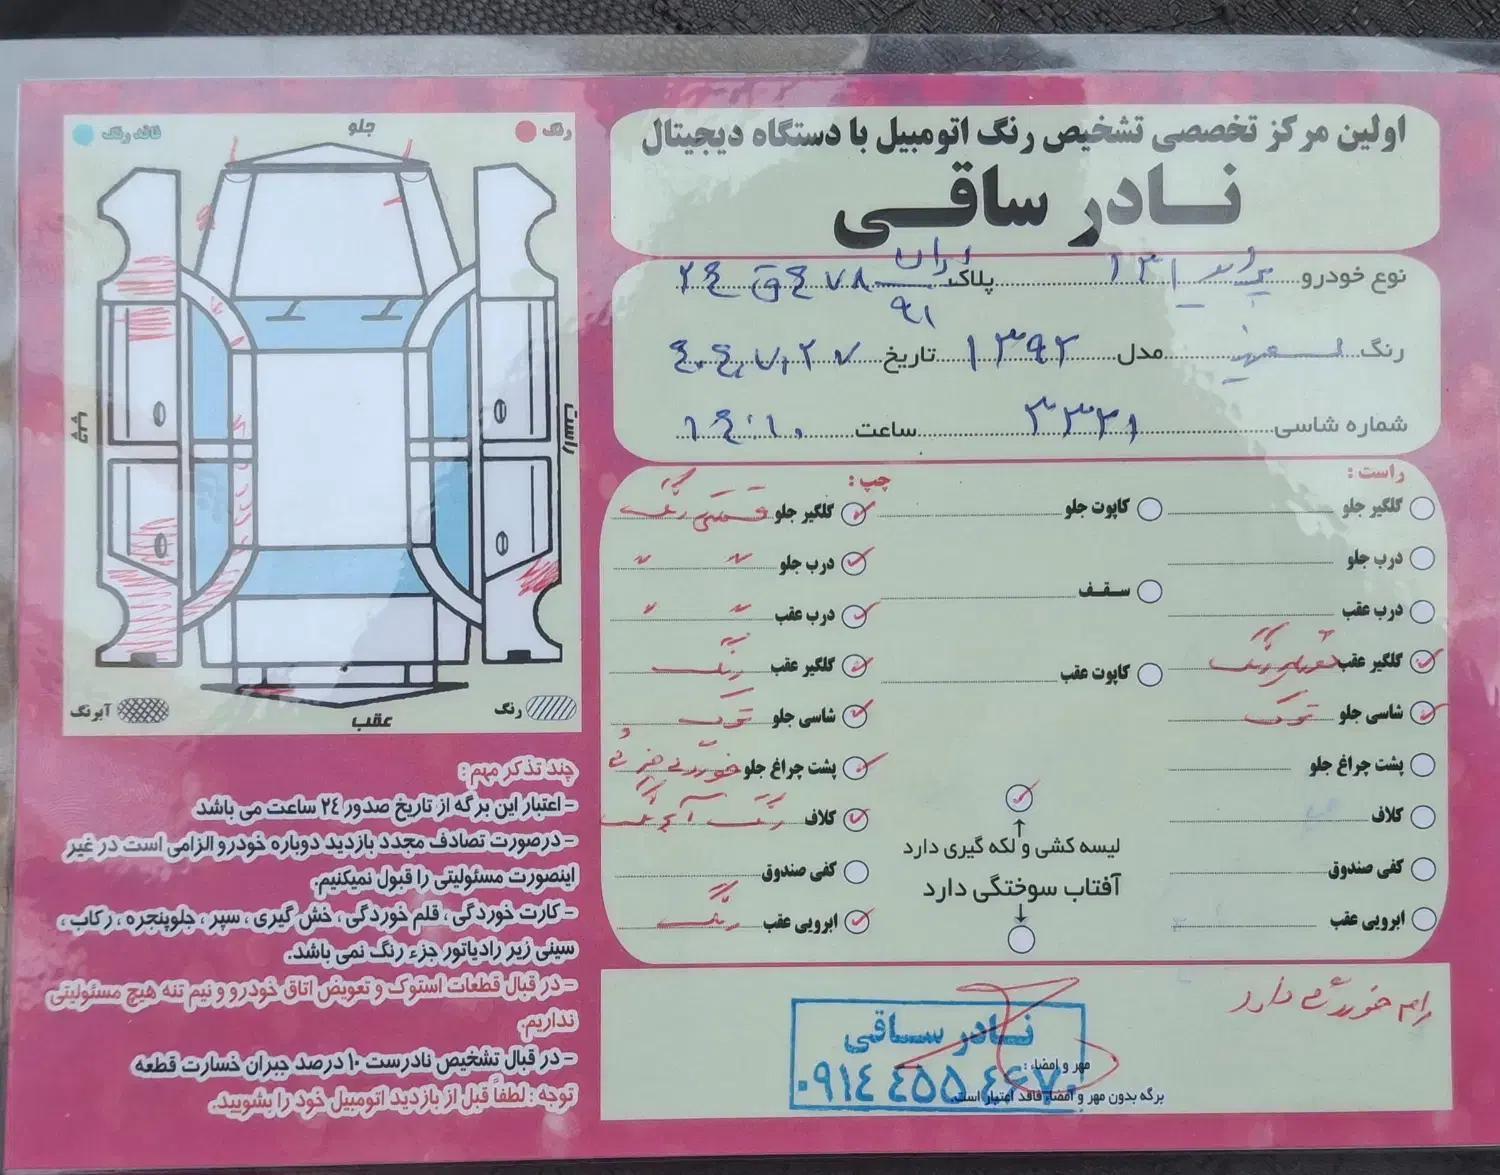 اولین مرکز تخصصی تشخیص رنگ اتومبیل با دستگاه دیجیتال
نادر ساقی
نوع خودرو پراید ۱۳۱ پلاک ایران ۹۱ ۲۴ ق ۴۷۸
رنگ سفید مدل ۱۳۹۲ تاریخ
شماره شاسی ۳۳۲۱ ساعت ۱۴:۱۰
راست :
گلگیر جلو
درب جلو
درب عقب
گلگیر عقب
شاسی جلو ترک
پشت چراغ جلو
کلاف
کفی صندوق
ابرویی عقب
کاپوت جلو
سقف
کاپوت عقب
لیسه کشی و لکه گیری دارد
آفتاب سوختگی دارد
چپ :
گلگیر جلو رنگ
درب جلو " "
درب عقب " "
گلگیر عقب رنگ
شاسی جلو ترک
پشت چراغ جلو خوردگی جزئی
کلاف رنگ آبرنگ
کفی صندوق
ابرویی عقب رنگ
رام خوردگی دارد
نادر ساقی
مهر و امضاء :
۰۹۱۴ ۴۵۵ ۴۶۷۰
برگه بدون مهر و امضاء فاقد اعتبار است.
رنگ
جلو
فاقد رنگ
راست
چپ
رنگ
عقب
آبرنگ
چند تذکر مهم :
- اعتبار این برگه از تاریخ صدور ۲۴ ساعت می باشد
- درصورت تصادف مجدد بازدید دوباره خودرو الزامی است در غیر
اینصورت مسئولیتی را قبول نمیکنیم.
- کارت خوردگی ، قلم خوردگی ، خش گیری ، سپر ، جلوپنجره ، رکاب ،
سینی زیر رادیاتور جزء رنگ نمی باشد.
- در قبال قطعات استوک و تعویض اتاق خودرو و نیم تنه هیچ مسئولیتی
نداریم.
- در قبال تشخیص نادرست ۱۰ درصد جبران خسارت قطعه
توجه : لطفاً قبل از بازدید اتومبیل خود را بشویید.